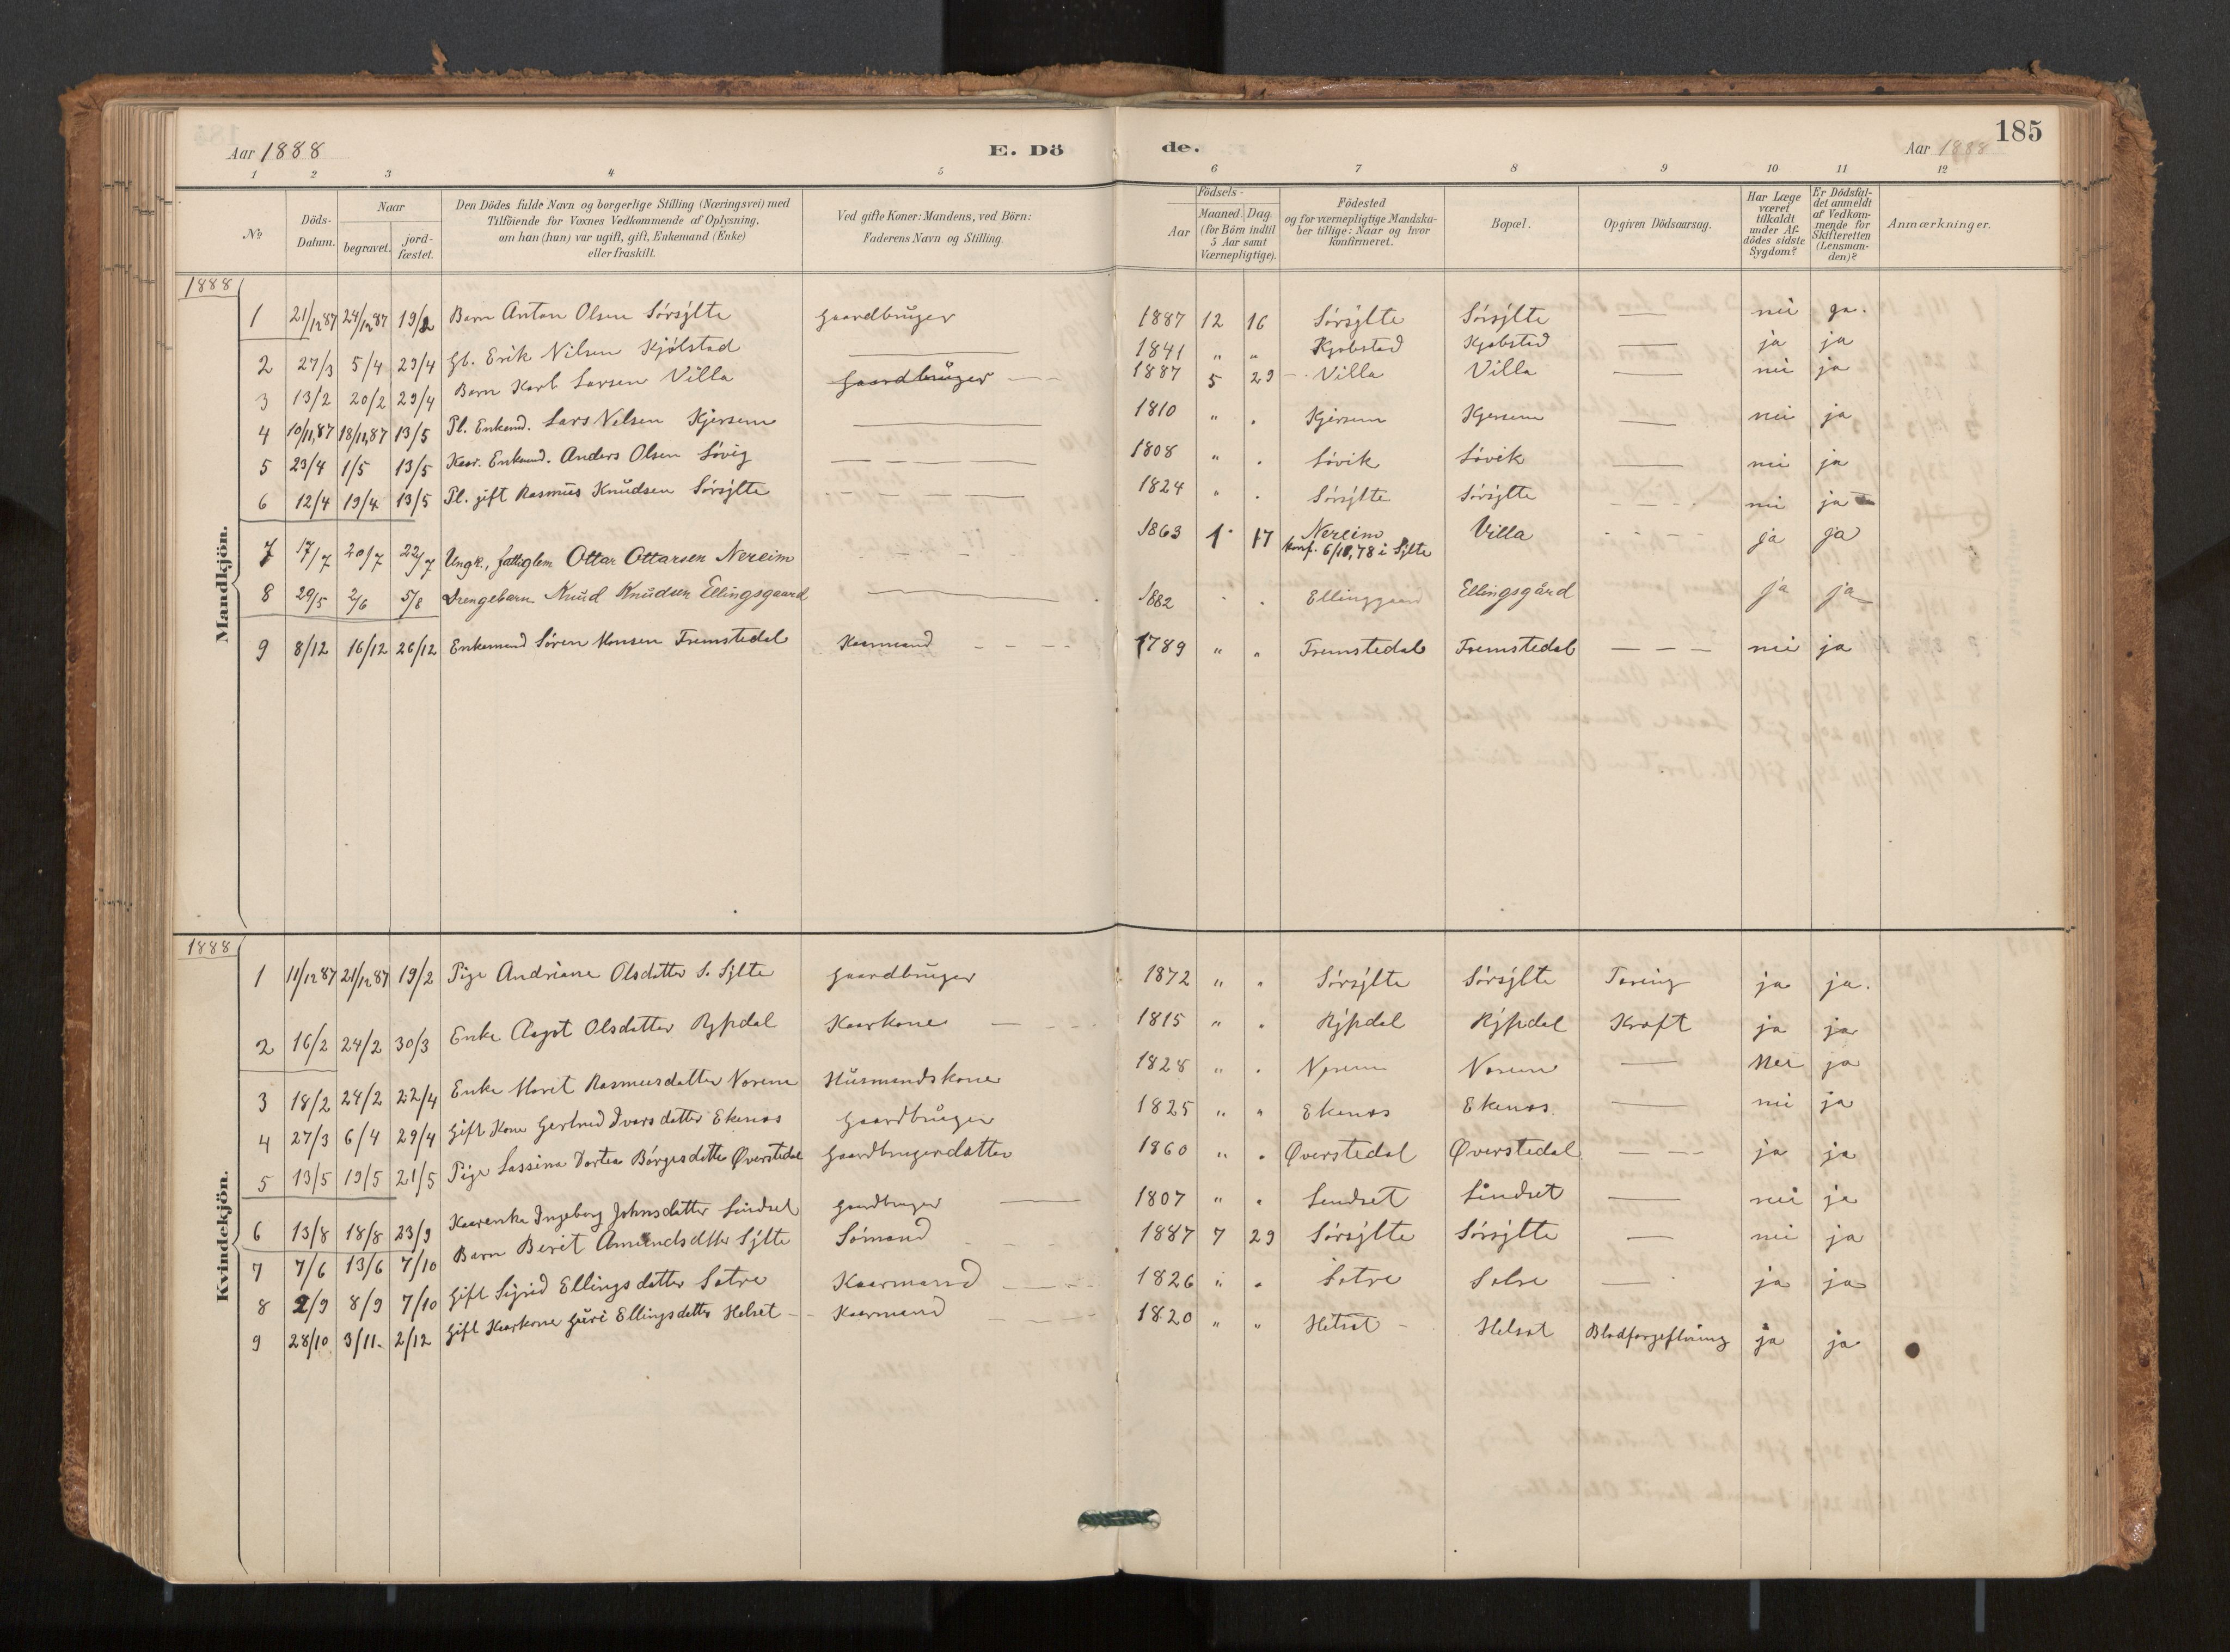 185
Aar 1888 E. Dö de. Aar 1888
1 2 3 4 5 6 7 8 9 10 11 12
No Döds-Datum. Naar begravet. jord-fæstet. Den Dödes fulde Navn og borgerlige Stilling (Næringsvei) med Tilföiende for Voxnes Vedkommende af Oplysning, om han (hun) var ugift, gift, Enkemand (Enke) eller fraskilt. Ved gifte Koner: Mandens, ved Börn: Faderens Navn og Stilling. Aar Födsels- Maaned. Dag. (for Börn indtil 5 Aar samt Værnepligtige). Födested og for værnepligtige Mandskaber tillige: Naar og hvor konfirmeret. Bopæl. Opgiven Dödsaarsag. Har Læge været tilkaldt under Afdödes sidste Sygdom? Er Dödsfaldet anmeldt af Vedkommende for Skifteretten (Lensmanden)? Anmærkninger.
Mandkjön.
1888
1 21/12 87 24/12 87 19/2 Barn Anton Olsen Sørsylte Gaardbruger 1887 12 16 Sørsylte Sørsylte — nei ja.
2 27/3 5/4 29/4 Gb. Erik Nilsen Kjølstad — 1841 " " Kjølstad Kjølstad — ja ja
3 13/2 20/2 29/4 Barn Karl Larsen Villa Gaardbruger — 1887 5 29 Villa Villa — nei ja
4 10/11,87 18/11,87 13/5 Pl. Enkemd. Lars Nilsen Kjersem — 1810 " . Kjersem Kjersem — nei ja
5 23/4 1/5 13/5 Kaar. Enkemd. Anders Olsen Søvig — 1808 " . Søvik Søvik — nei ja
6 12/4 19/4 13/5 Pl. gift Rasmus Knudsen Sørsylte — 1824 " . Sørsylte Sørsylte — nei ja
7 17/7 20/7 22/7 Ungk., fattiglem Ottar Ottarsen Nereim — 1863 1 17 Nereim Villa — ja ja
konf. 6/10,78 i Sylte
8 29/5 2/6 5/8 Drengebarn Knud Knudsen Ellingsgaard — 1882 " . Ellinggaard Ellingsgård ja ja
9 8/12 16/12 26/12 Enkemand Søren Monsen Fremstedal Kaarmand — 1789 " " Fremstedal Fremstedal — nei ja
Kvindekjön.
1888
1 11/12 87 21/12 87 19/2 Pige Andriane Olsdatter S. Sylte Gaardbruger 1872 " " Sørsylte Sørsylte Tæring ja ja.
2 16/2 24/2 30/3 Enke Aagot Olsdatter Rypdal Kaarkone — 1815 " " Rypdal Rypdal Kræft ja ja
3 18/2 24/2 22/4 Enke Marit Rasmusdatter Norem Husmandskone 1828 " . Norem Norem — Nei ja
4 27/3 6/4 29/4 Gift Kone Gertrud Ivarsdatter Ekenæs Gaardbruger 1825 " " Ekenæs Ekenæs — nei ja
5 13/5 19/5 21/5 Pige Lassina Dortea Børgesdatter Øverstedal Gaardbrugerdatter 1860 " " Øverstedal Øverstedal — ja ja
6 13/8 18/8 23/9 Kaarenke Ingeborg Johnsdatter Lindset Gaardbruger — 1807 " " Lindset Lindset — nei ja
7 7/6 13/6 7/10 Barn Berit Amundsdtter Sylte Sømand — 1887 7 29 Sørsylte Sørsylte — nei ja
8 2/9 8/9 7/10 Gift Sigrid Ellingsdatter Sætre Kaarmand — 1826 " " Sætre Sætre — ja ja
9 28/10 3/11. 2/12 Gift Kaarkone Guri Ellingsdatter Helset — Kaarmand — 1820 " " Helset Helset Blodforgiftning ja ja